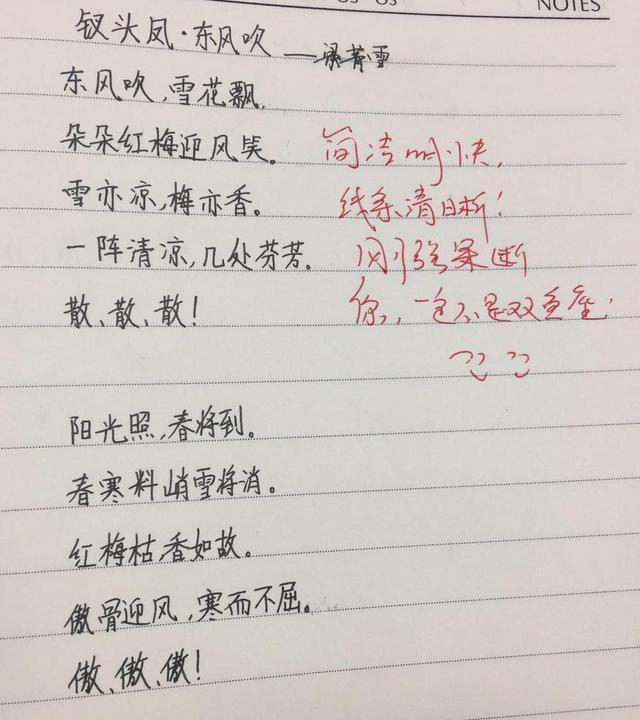 NOTES
钗头凤·东风吹
东风吹,雪花飘,
朵朵红梅迎风笑。
简洁明快,
雪亦凉,梅亦香。
线条清晰!
一阵清凉,几处芬芳.
刚强果断
散、散、散!
你,一定不是双鱼座.
阳光照,春将到。
春寒料峭雪将消。
红梅枯,香如故。
傲骨迎风,寒而不屈。
傲、傲、傲!